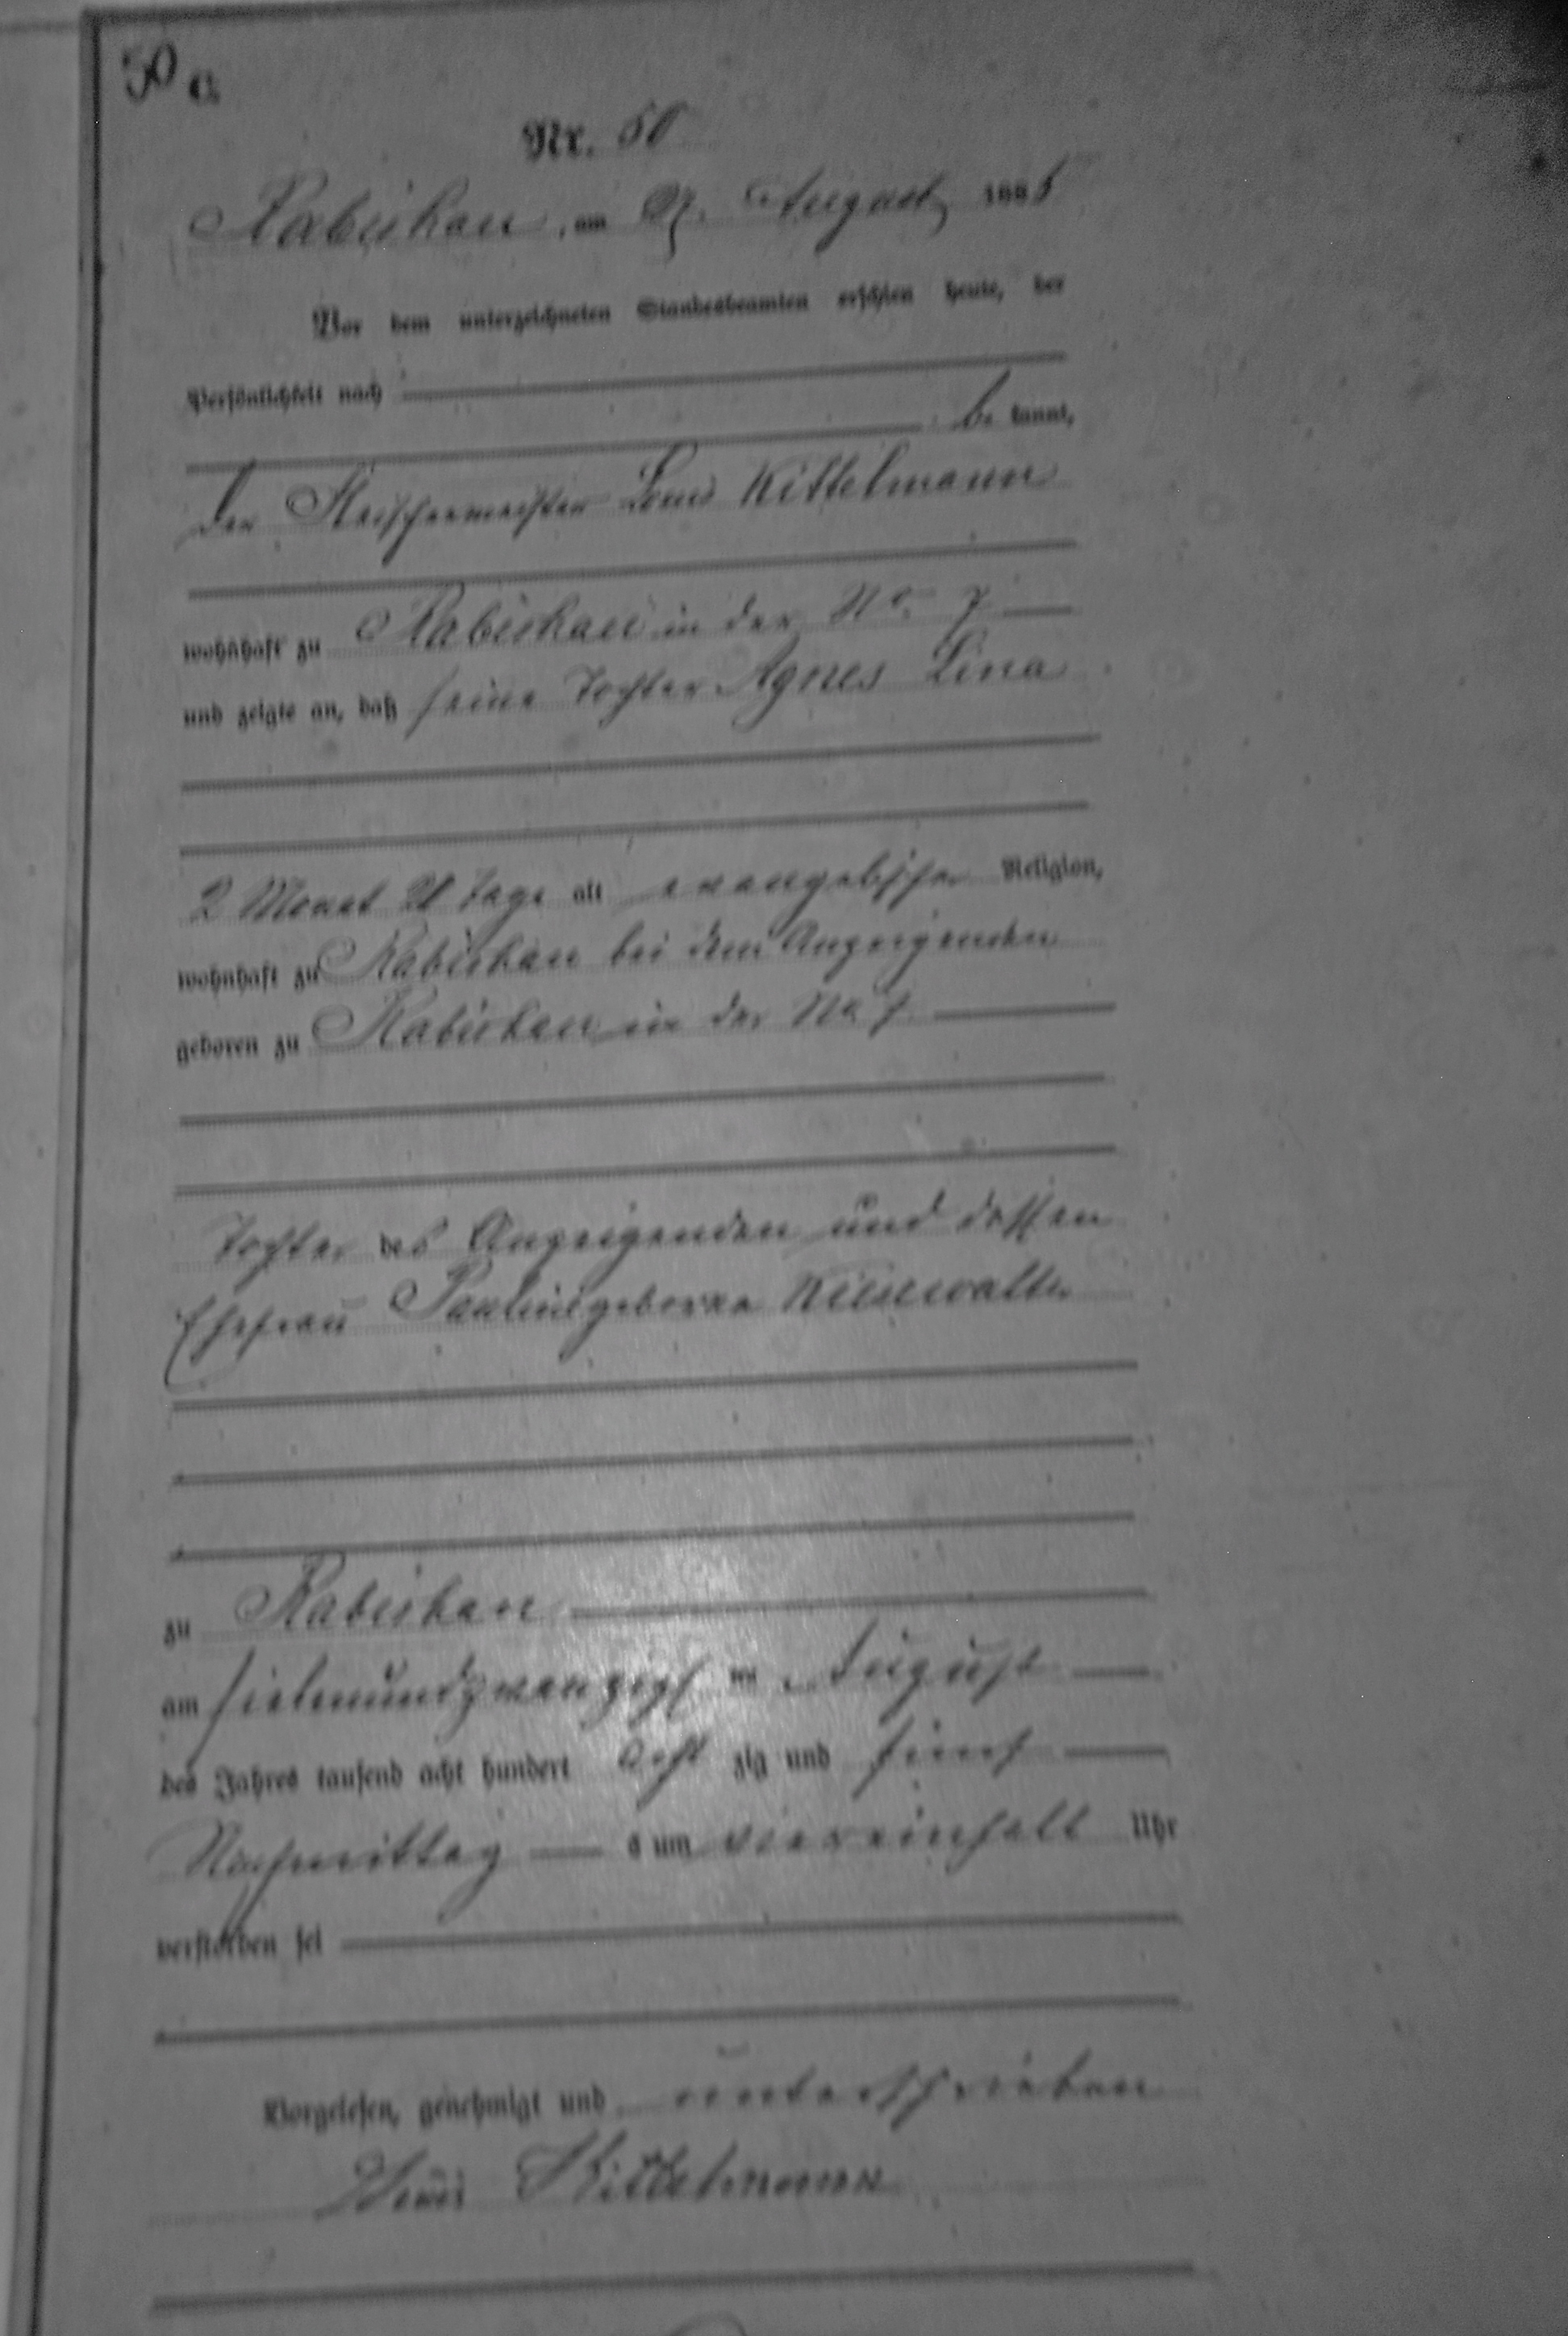 50 a.
Nr. 50
Rabishau, am 27. August 1885
Vor dem unterzeichneten Standesbeamten erschien heute, der
Persönlichkeit nach
be kannt,
der Fleischermeister Louis Kittelmann
wohnhaft zu Rabishau in der No. 7
und zeigte an, daß seine Tochter Agnes Lina
2 Monat 21 Tage alt evangelischer Religion,
wohnhaft zu Rabishau bei dem Anzeigenden
geboren zu Rabishau in der No 7
Tochter des Anzeigenden und dessen
Ehefrau Pauline geborene
zu Rabishau
am siebenundzwanzigsten August
des Jahres tausend acht hundert acht zig und fünf
Nachmittag s um viereinhalb Uhr
verstorben sei
Vorgelesen, genehmigt und unterschrieben
Louis Kittelmann